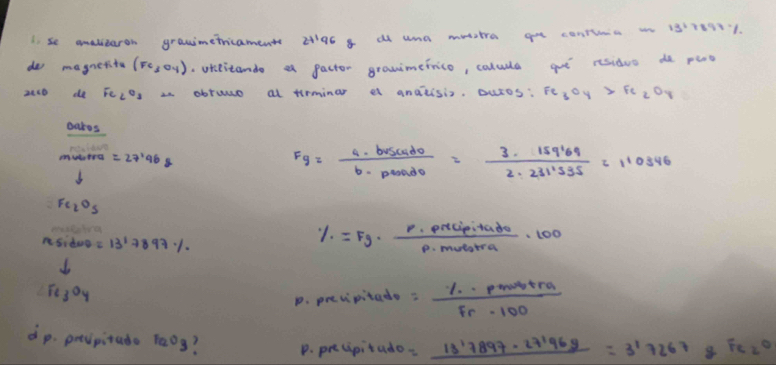 1. Se analizaron gravimetricamente 27'96 g de una muestra que contenia un 13'7897 %.
de magnetita (Fe3O4). Utilizando el factor gravimétrico, calcula qué residuo de peso
seco de Fe2O3 se obtuvo al terminar el análisis. Datos: Fe3O4 > Fe2O4
Datos
muestra = 27'96 g
↓
Fe2O3
residuo = 13'7897 %.
↓
Fe3O4
¿ p. precipitado Fe2O3?
Fg = a. buscado / b. pesado = 3. 159'69 / 2. 231'535 = 1'0346
% = Fg. p. precipitado / p. muestra . 100
p. precipitado = %. p muestra / Fr . 100
p. precipitado = 13'7897 . 27'96 g = 3'7267 g Fe2O